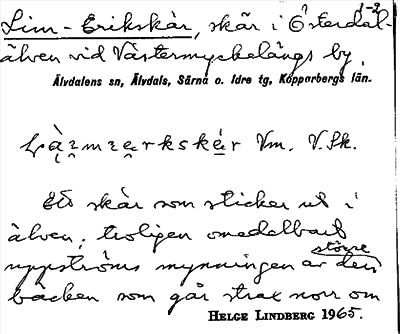 1-2
Lim-Erikskär, skär i Österdal-
älven vid Västermyckelängs by,
Älvdalens sn, Älvdals, Särna o. Idre tg, Kopparbergs län.
Vm. V. Sk.
Ett skär som sticker ut i
älven, troligen omedelbart
uppströms mynningen av den större
bäcken som går strax norr om
HELGE LINDBERG 1965.